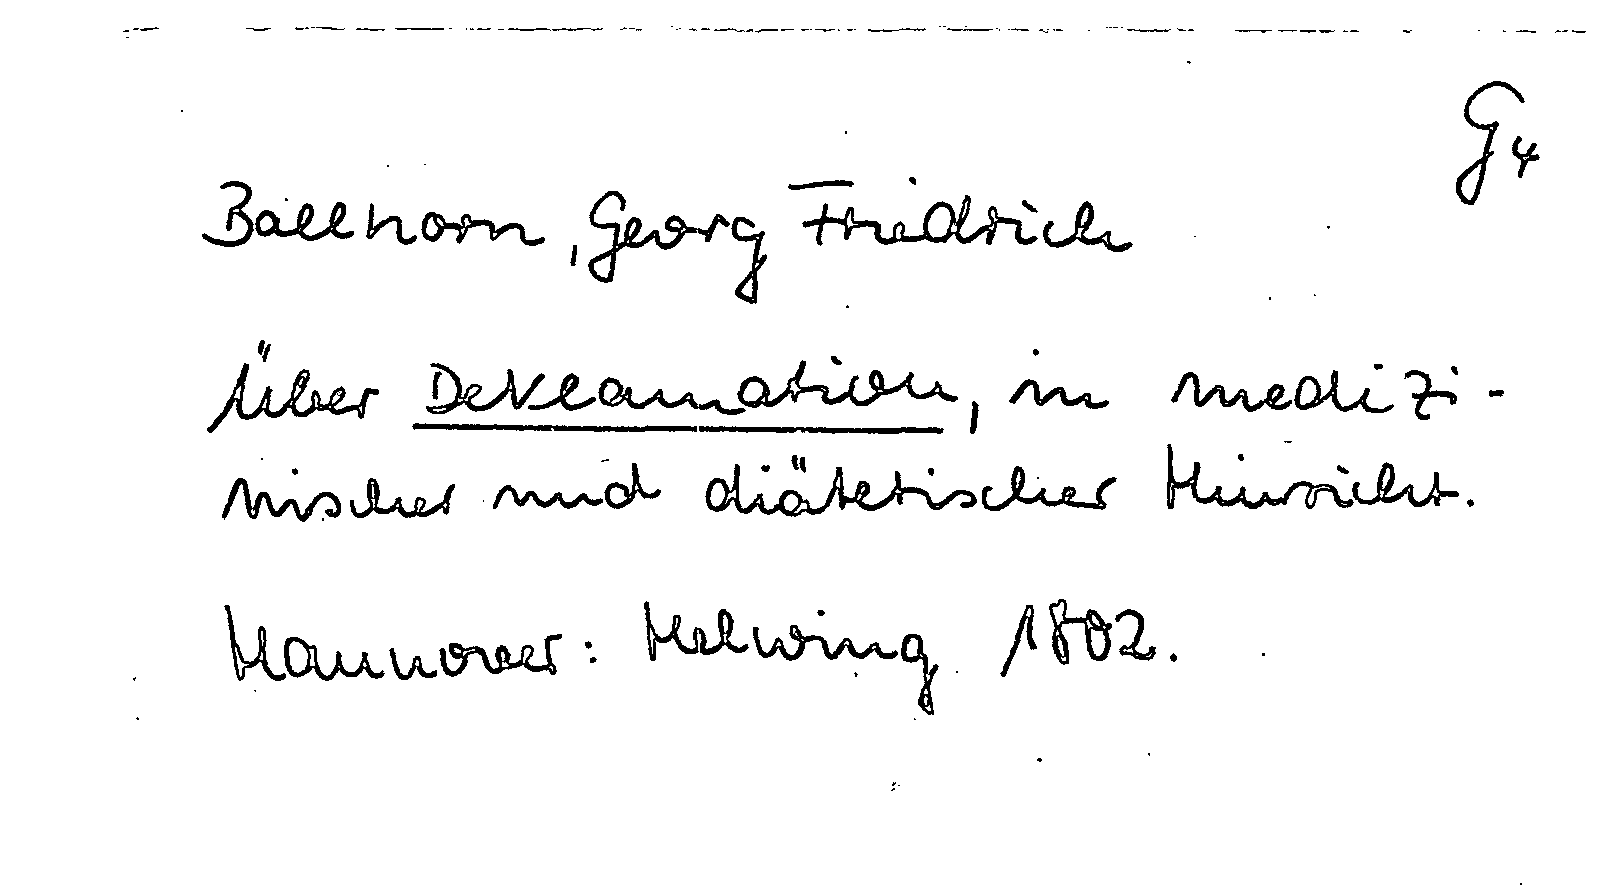 G4
Ballhorn, Georg Friedrich
Über Deklamation, in medizi-
nischer und diätetischer Hinsicht.
Hannover: Helwing 1802.